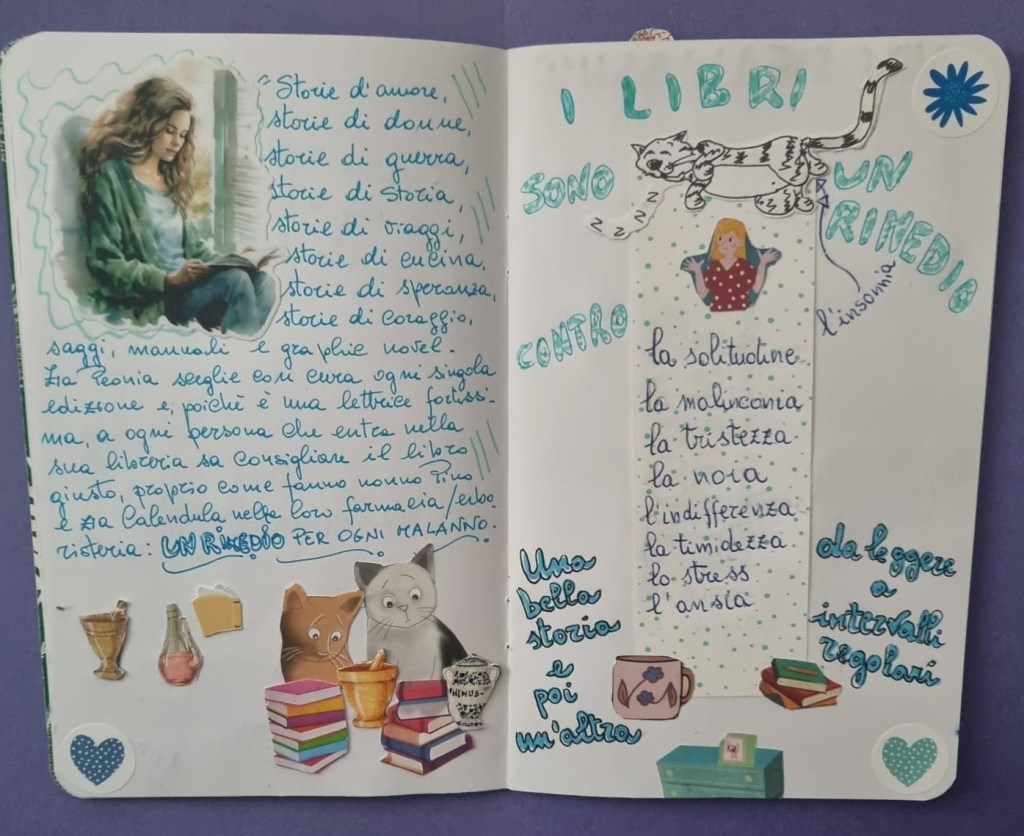 "Storie d'amore,
storie di donne,
storie di guerra,
storie di storia,
storie di viaggi,
storie di cucina,
storie di speranza,
storie di coraggio,
saggi, manuali e graphic novel.
Zia Peonia sceglie con cura ogni singola
edizione e, poiché è una lettrice fortissi-
ma, a ogni persona che entra nella
sua libreria sa consigliare il libro
giusto, proprio come fanno nonno Pino
e zia Calendula nella loro farmacia/erbo
risteria: UN RIMEDIO PER OGNI MALANNO.
HIMUS-
I LIBRI
SONO
UN
RIMEDIO
CONTRO
z z z z
l'insonnia
la solitudine
la malinconia
la tristezza
la noia
l'indifferenza
la timidezza
lo stress
l'ansia
Una
bella
storia
e
poi
un'altra
da leggere
a
intervalli
regolari